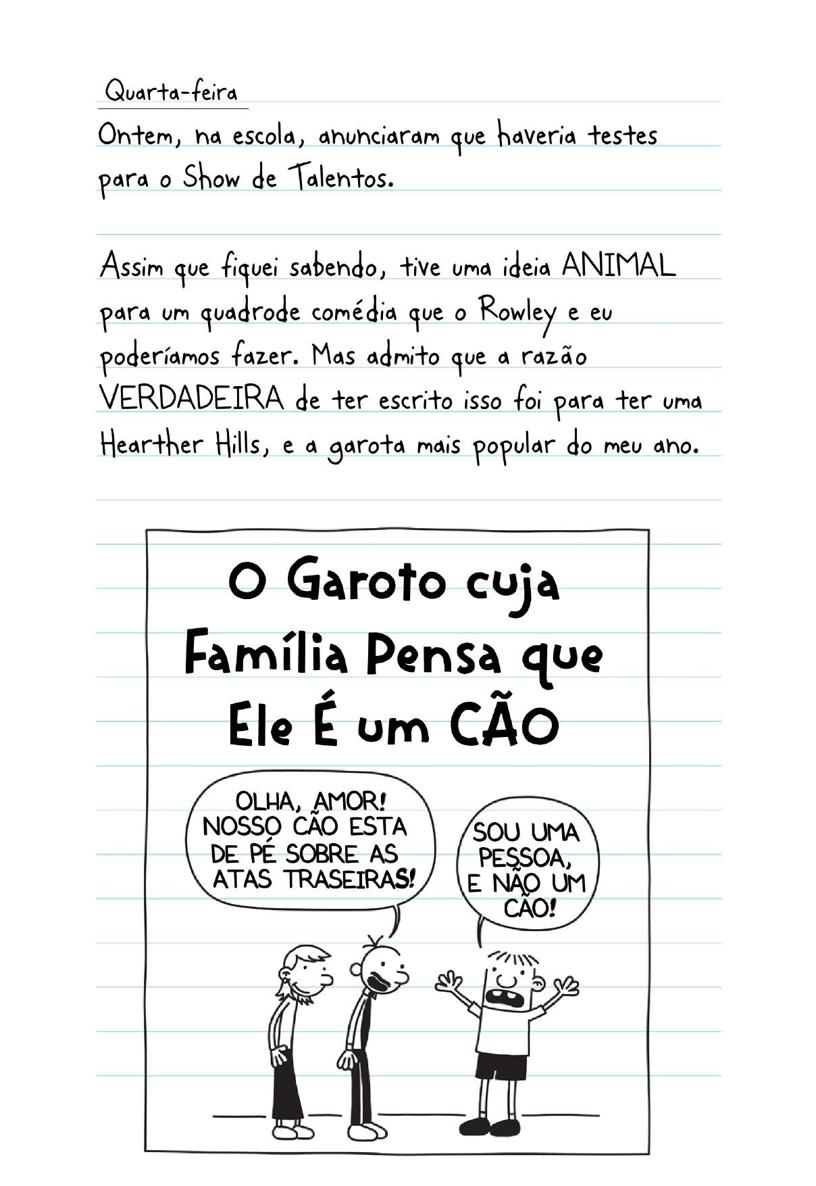 Quarta-feira
Ontem, na escola, anunciaram que haveria testes
para o Show de Talentos.
Assim que fiquei sabendo, tive uma ideia ANIMAL
para um quadrode comédia que o Rowley e eu
poderíamos fazer. Mas admito que a razão
VERDADEIRA de ter escrito isso foi para ter uma
Hearther Hills, e a garota mais popular do meu ano.
O Garoto cuja
Família Pensa que
Ele É um CÃO
OLHA, AMOR!
NOSSO CÃO ESTA
DE PÉ SOBRE AS
ATAS TRASEIRAS!
SOU UMA
PESSOA,
E NÃO UM
CÃO!